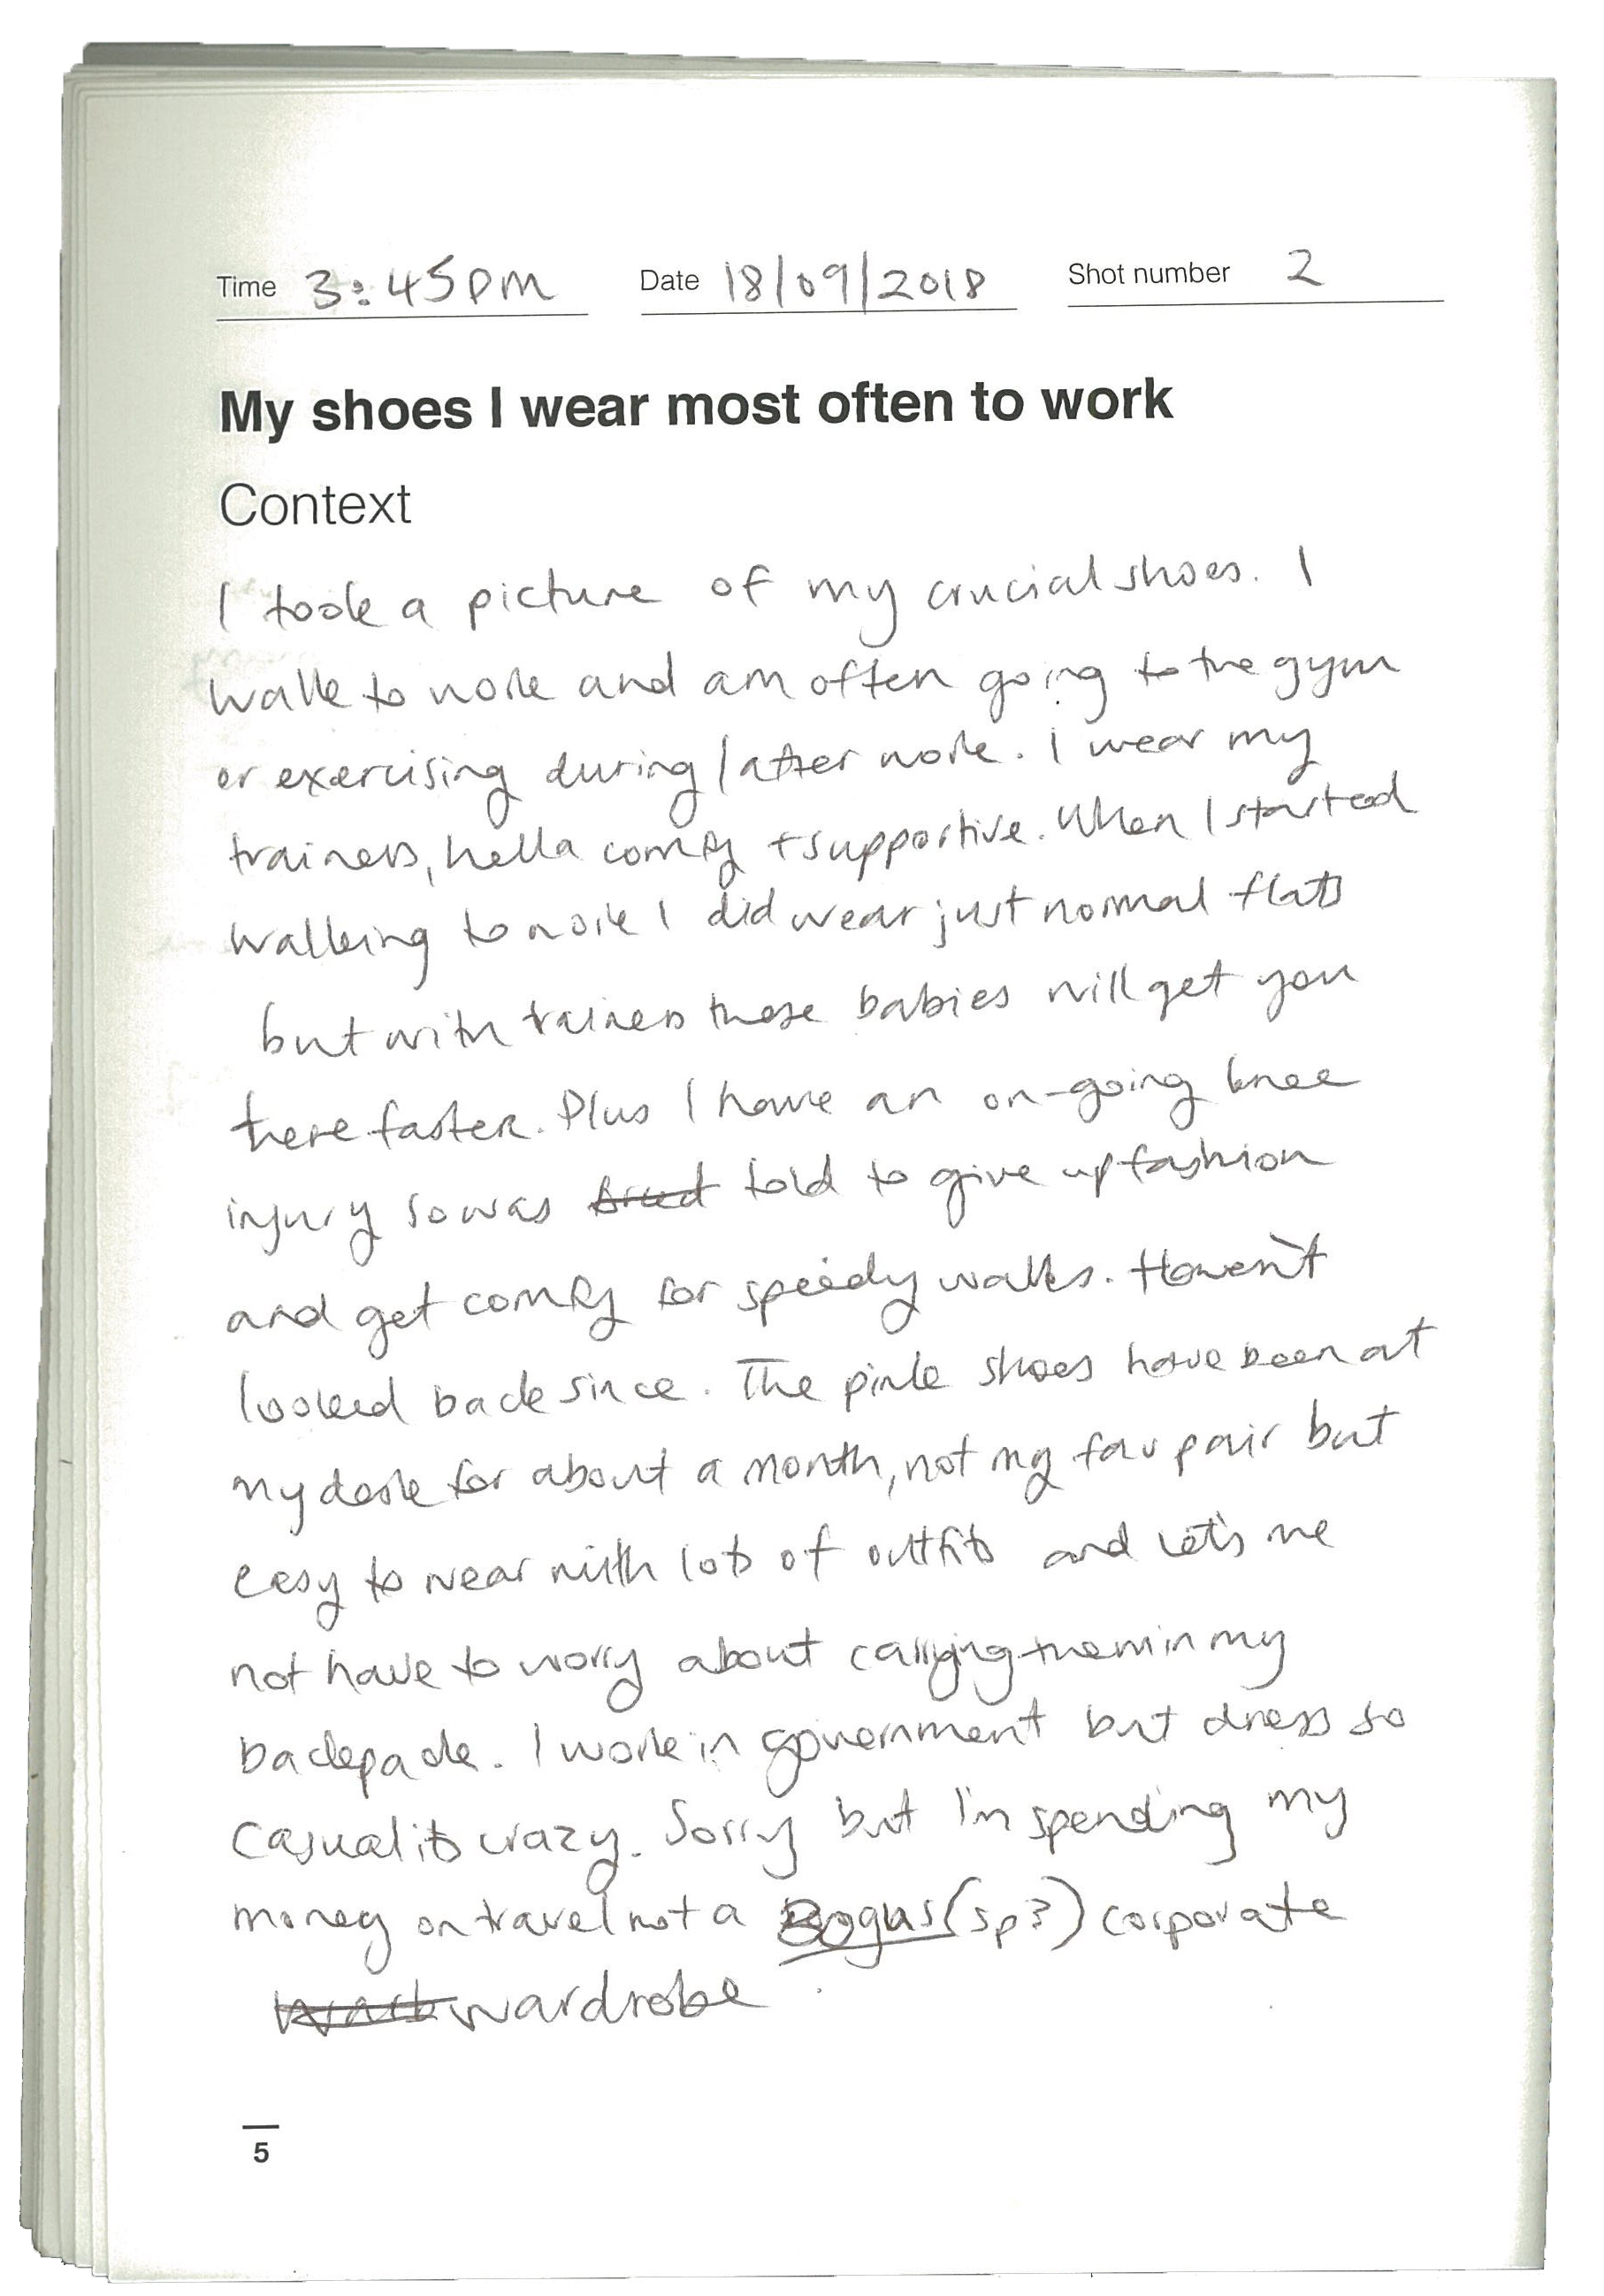 Time 3:45pm Date 18/09/2018 Shot number 2
My shoes I wear most often to work
Context
I took a picture of my crucial shoes. I
walk to work and am often going to the gym
or exercising during/after work. I wear my
trainers, hella comfy + supportive. When I started
walking to work I did wear just normal flats
but with trainers these babies will get you
there faster. Plus I have an on-going knee
injury so was told to give up fashion
and get comfy for speedy walks. Haven't
looked back since. The pink shoes have been at
my desk for about a month, not my fav pair but
easy to wear with lots of outfits and let's me
not have to worry about carrying them in my
backpack. I work in government but dress so
casual its crazy. Sorry but I'm spending my
money on travel not a Bogus (sp?) corporate
wardrobe
5